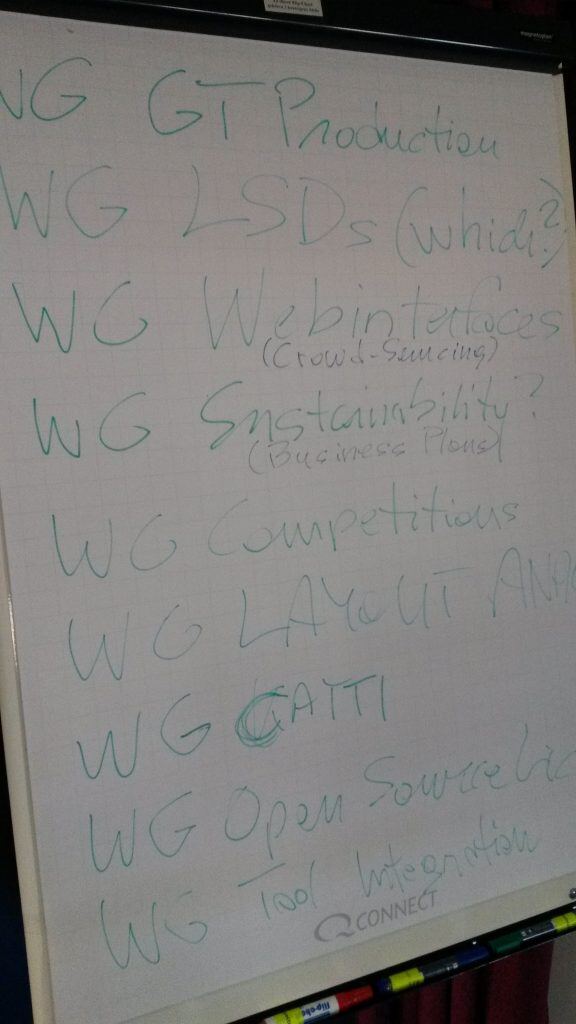 WG GT Production
WG LSDs (which?)
WG Webinterfaces
(Crowd-Sourcing)
WG Sustainability?
(Business Plans)
WG Competitions
WG LAYOUT ANA
WG GATTI
WG Open Source Lic
WG Tool Integration
CONNECT
flip-cha